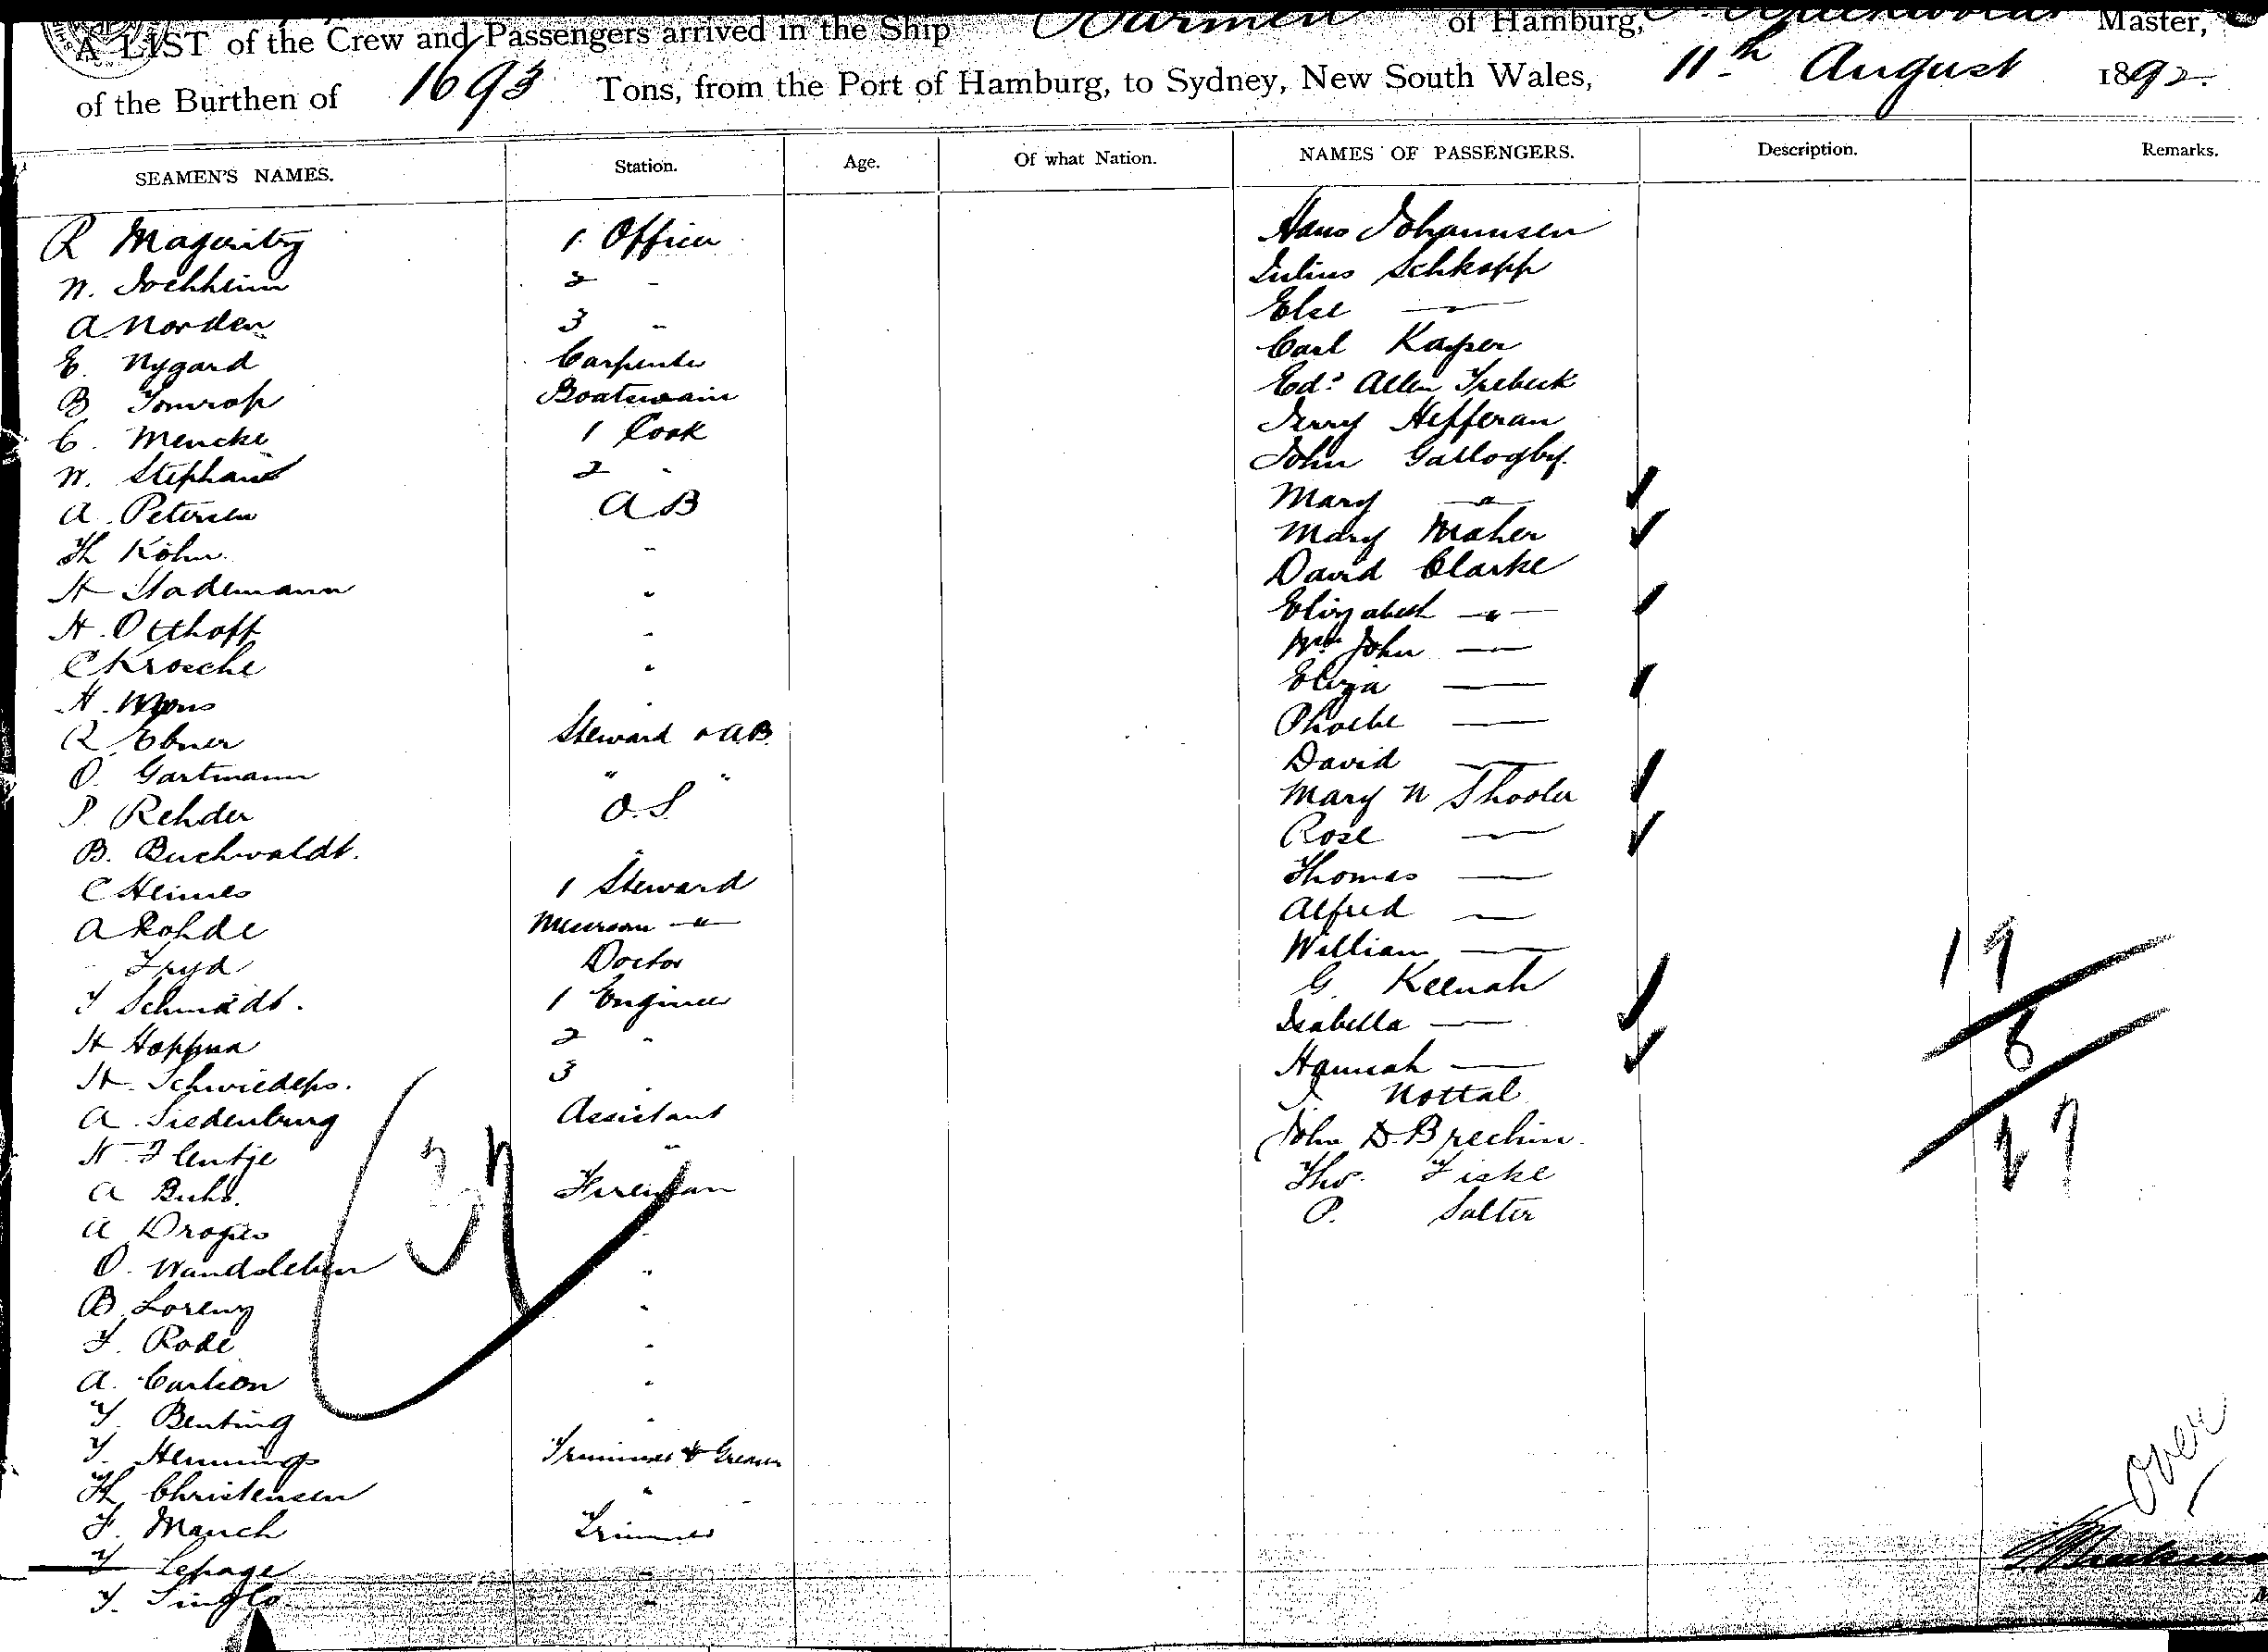 A LIST of the Crew and Passengers arrived in the Ship Barmen of Hamburg, Master,
of the Burthen of 1693 Tons, from the Port of Hamburg, to Sydney, New South Wales, 11th August 1892.
SEAMEN'S NAMES. Station. Age. Of what Nation. NAMES OF PASSENGERS. Description. Remarks.
R Magaritz 1. Officer Hans Johannsen
N. 2 - Julius Schkopp
A Norden 3 " Else —
E. Nygard Carpenter Carl Kayser
B Boatswain Edd Allen Trebeck
C. Mencke 1 Cook Jerry Hefferan
W. Stephans 2 " John Gallogby.
A. Petersen AB Mary —"—
Th Köhn " Mary Maher
H Stademann " David Clarke
H. Otthoff " Elizabeth —"—
C Krosche " Wm John —
H. " Eliza —
R Ebner Steward & AB. Phoebe —
O. Gartmann " " David —
P. Rehder O.S. Mary N Thooler
B. Buchwaldt. " Rose —
C Heimes 1 Steward Thomas —
A Rohde Messroom —"— Alfred —
Fryd Doctor William —
F Schmidt. 1 Engineer G. Keenah
H Hoppma 2 " Isabella —
H. Schwiedeps. 3 " Hannah —
A. Siedenburg Assistant J. Nottal
H. Flentje " John D. Brechin.
A Buhs. Fireman Thos. Fiske
A Droges " P. Salter
O. Wandsleben "
B. Lorenz "
F. Rode "
A. Carlson "
F. Benting "
F. Hennings Trimmer & Greaser
Th Christensen "
F. Mauch Trimmer
F Lepage "
F. Singlo "
37
19
8
27
Over